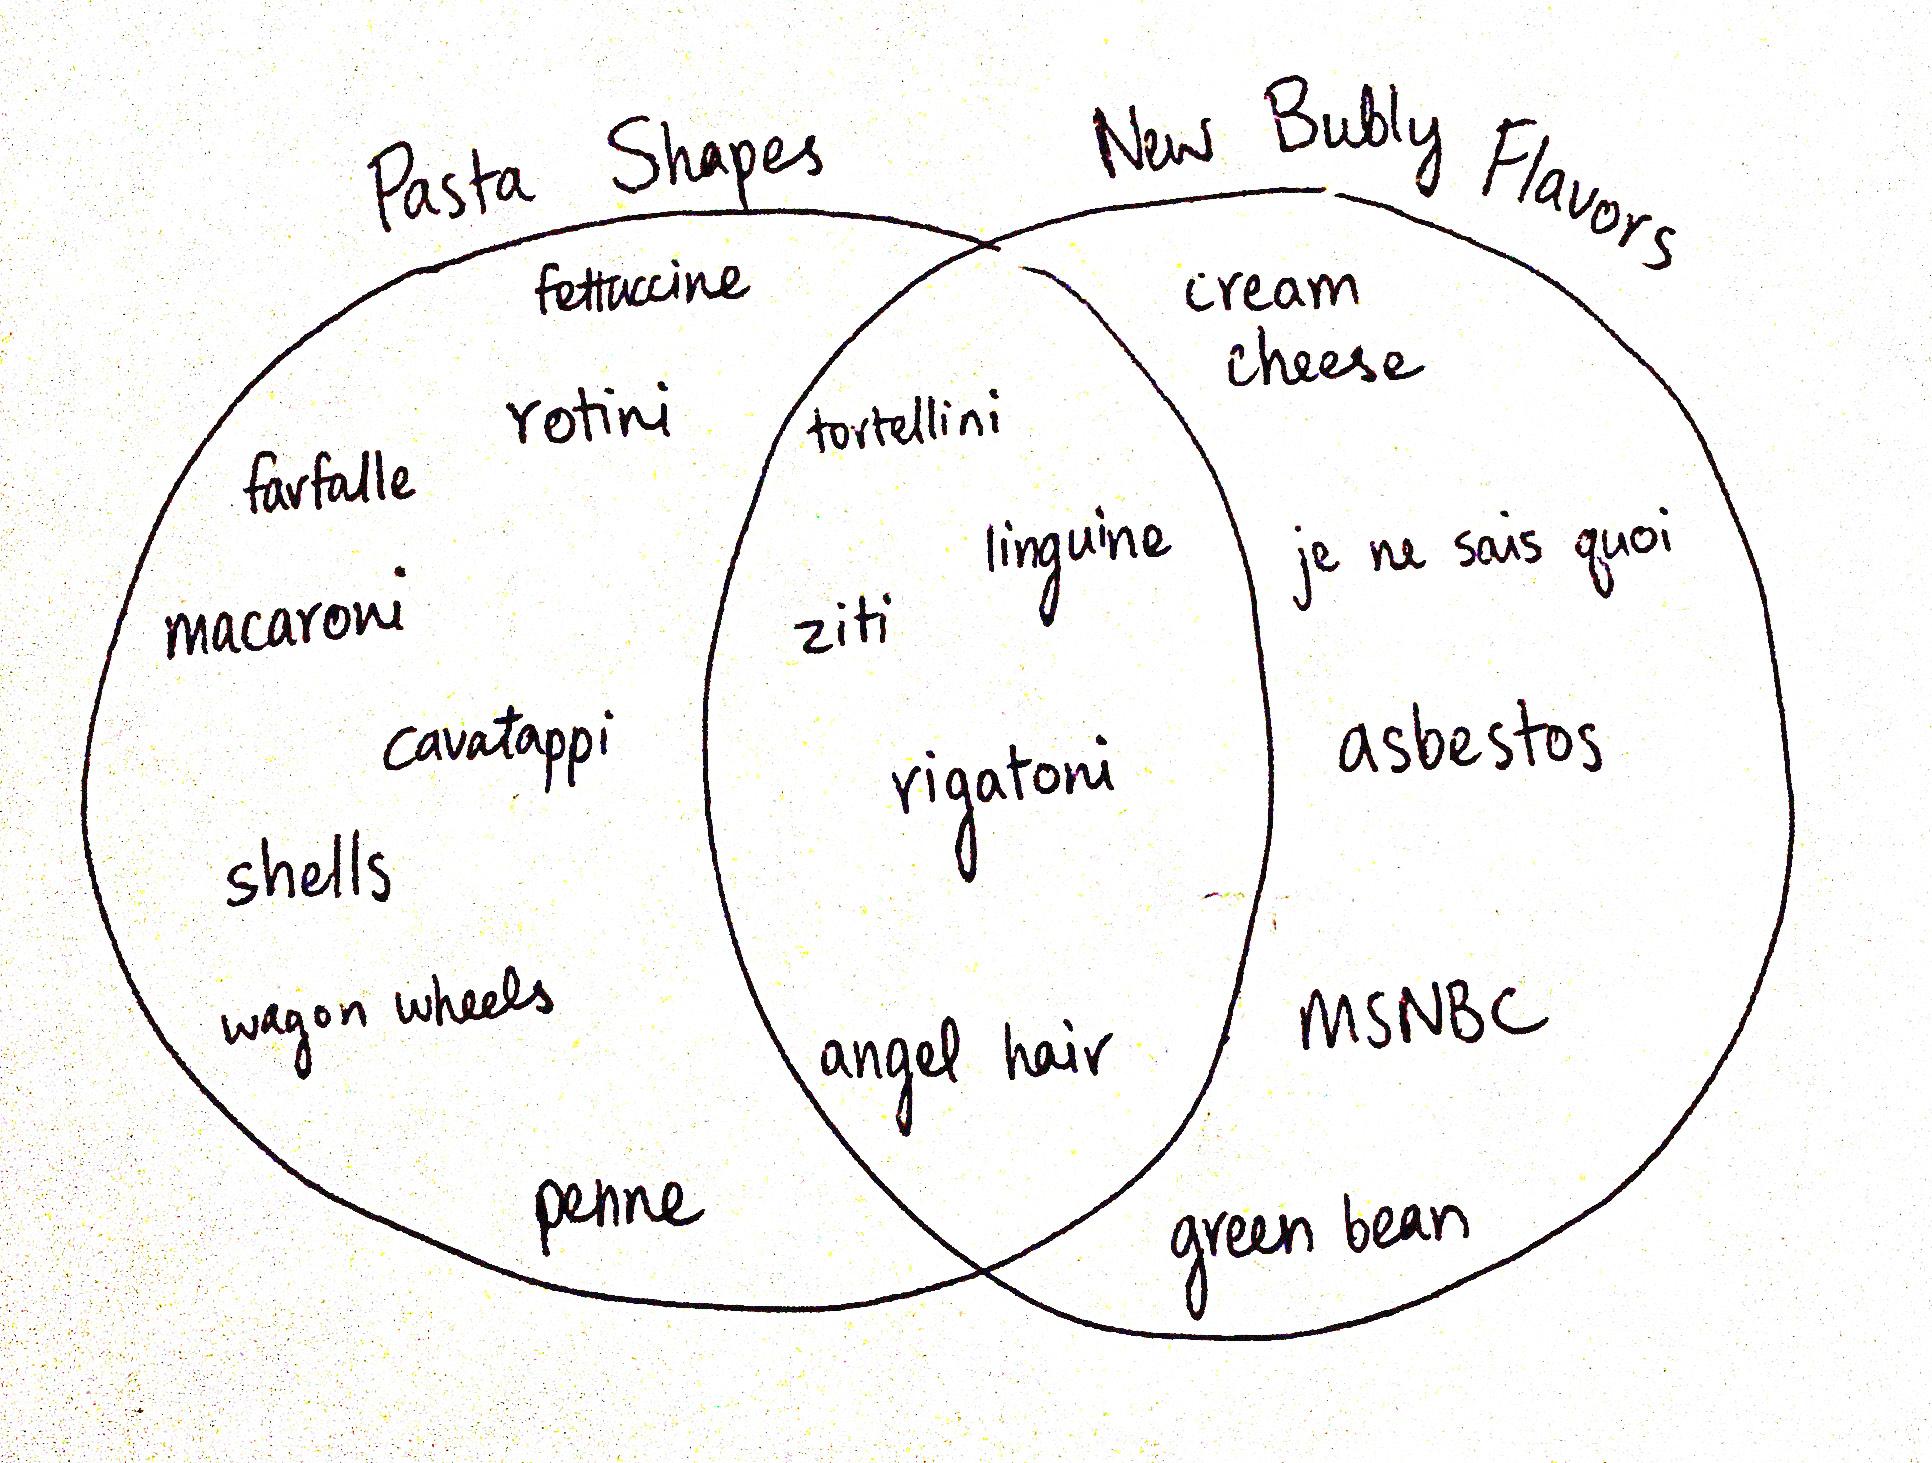 Pasta Shapes
New Bubly Flavors
fettuccine
rotini
farfalle
macaroni
cavatappi
shells
wagon wheels
penne
tortellini
linguine
ziti
rigatoni
angel hair
cream
cheese
je ne sais quoi
asbestos
MSNBC
green bean